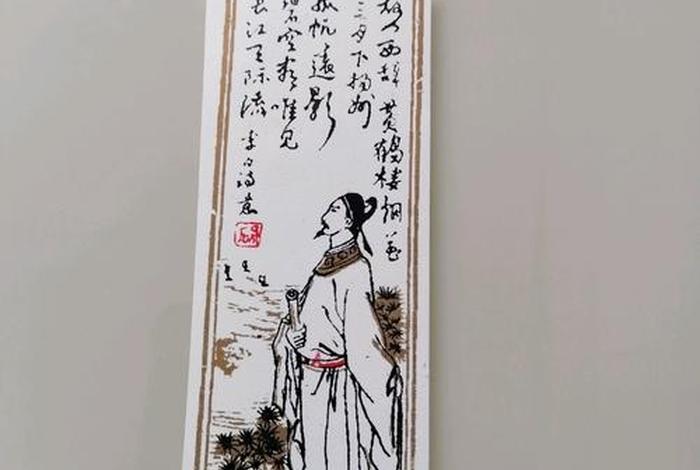 故人西辞黄鹤楼烟花
三月下扬州
孤帆遠影
碧空尽唯见
长江天际流
李白诗意